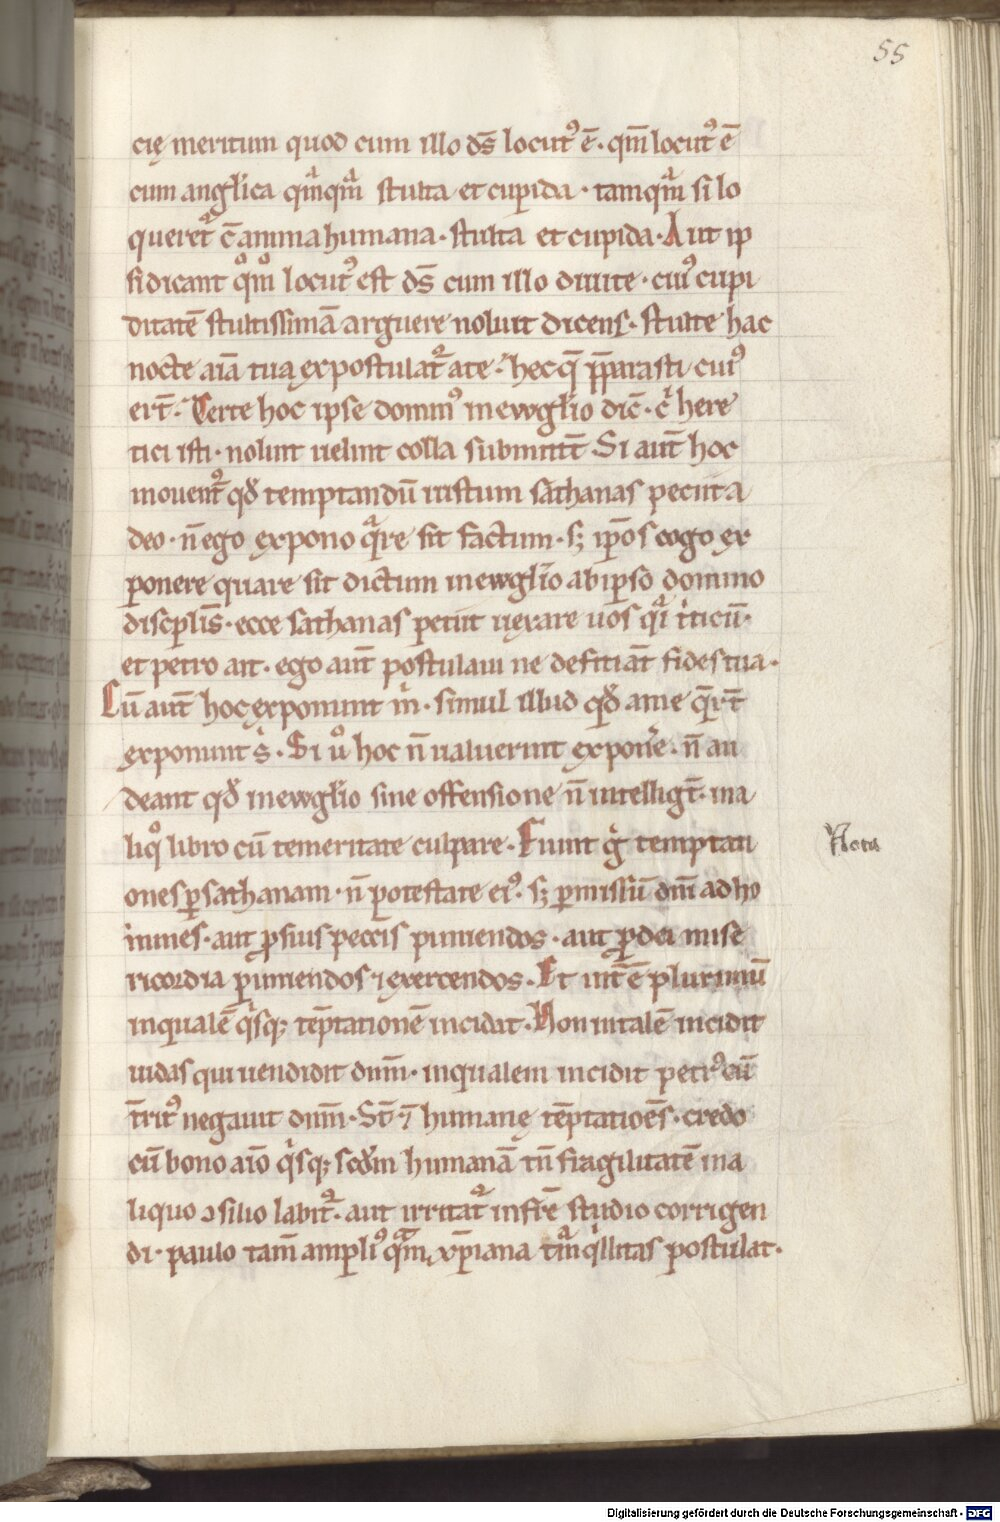 55
cię meritum quod cum illo ds̄ locut᾿ ē · qm̄ locut᾿ ē
cum anglica qmqm stulta et cupida · tamqm si lo
queret᾿ c̄ anima humana · stulta et cupida · Aut ip
si dicant qm̊ locut᾿ est ds̄ cum illo diuite · cui᾿ cupi
ditatē stultissimā arguere uoluit dicens · stulte hac
nocte aīa tua expostulat᾿ a te · hec q̄ p̄parasti cui᾿
ert̄ · Certe hoc ipse domin᾿ in ewgłio dic̄ · c̓ here
tici isti · nolint uelint colla submittt̄ · Si aut̄ hoc
mouent᾿ qđ temptandū iustum sathanas petiit a
deo · n̄ ego expono qre sit factum · sꝫ ip̄os cogo ex
ponere quare sit dictum in ewgłio ab ipso domino
discpłis · ecce sathanas petiit uexare uos qi t̓ticū ·
et petro ait · ego aut̄ postulaui ne defitiāt fides tua ·
Cū aut̄ hoc exponunt m̓ · simul illud qđ a me q̄rt̄
exponunt s̓ · Si ů hoc n̄ ualuerint expone᾿ · n̄ au
deant qđ in ewgłio sine offensione n̄ intelligt̄ · in a
liq̊ libro cū temeritate culpare · Fiunt g̓ temptati
ones ꝑ sathanam · n̄ potestate ei᾿ · sꝫ ꝑmissū dn̄i ad ho
mines · aut ꝓ suis peccīs puniendos · aut ꝓ dei mise
ricordia puniendos ⁊ exercendos · Et int̄ē plurimū
in qualē q̓sqꝫ tēptationē incidat · Non in talē incidit
iudas qui uendidit dnm̄ · in qualem incidit petr᾿ cū
t̄rit᾿ negauit dnm̄ · St̄ · ⁊ humanę tēptatioēs · credo
cū bono aīo q̓sqꝫ scđm humanā tn̄ fragilitatē in a
liquo ɔsilio labit᾿ · aut irritat᾿ in fr̄ē studio corrigen
di · paulo tam̄ ampli᾿ qm xp̄iana tm̄ q̓llitas postulat ·
Nota
Digitalisierung gefördert durch die Deutsche Forschungsgemeinschaft - DFG